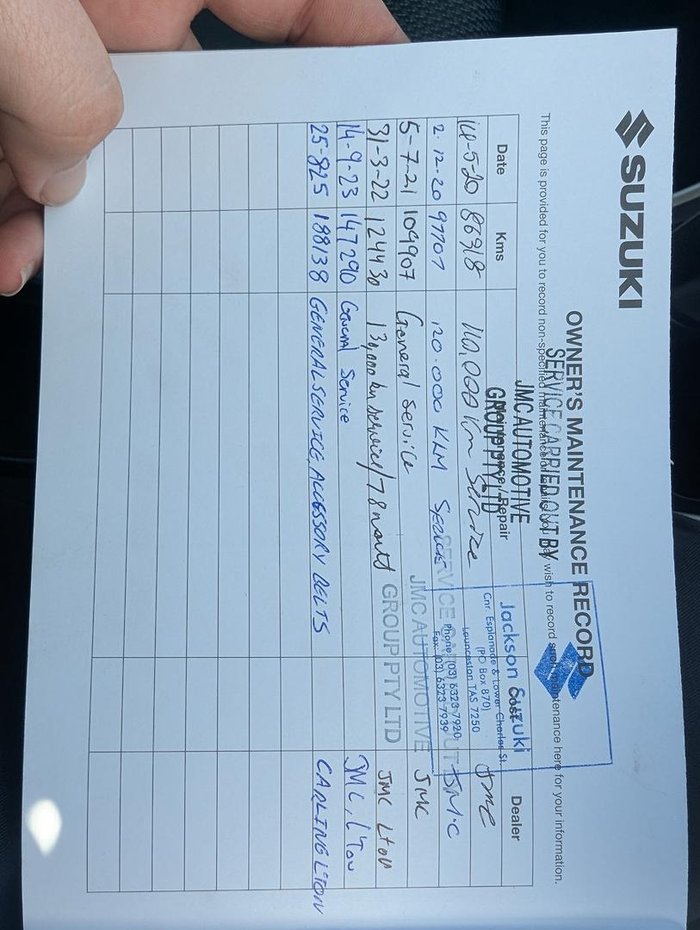 SUZUKI
OWNER'S MAINTENANCE RECORD
This page is provided for you to record non-specified maintenance wish to record such maintenance here for your information.
SERVICE CARRIED OUT BY
JMC AUTOMOTIVE
GROUP PTY LTD
Jackson Suzuki
Cnr. Esplanade & Lower Charles St.
(PO Box 870)
Launceston TAS 7250
Phone: (03) 6323 7920
Fax: (03) 6323 7939
Date Kms Maintenance / Repair Cost Dealer
14-5-20 86918 110,000 km Service JMC
2.12-20 97707 120.000 KLM Service JM.C
5-7-21 104907 General Service JMC
31-3-22 124430 130,000 km service/78 month JMC LTON
14-9-23 147290 General Service JMC, L'Ton
25-825 188138 GENERAL SERVICE, ACCESSORY BELTS CARLIN LTON
SERVICE OUT
JMC AUTOMOTIVE
GROUP PTY LTD